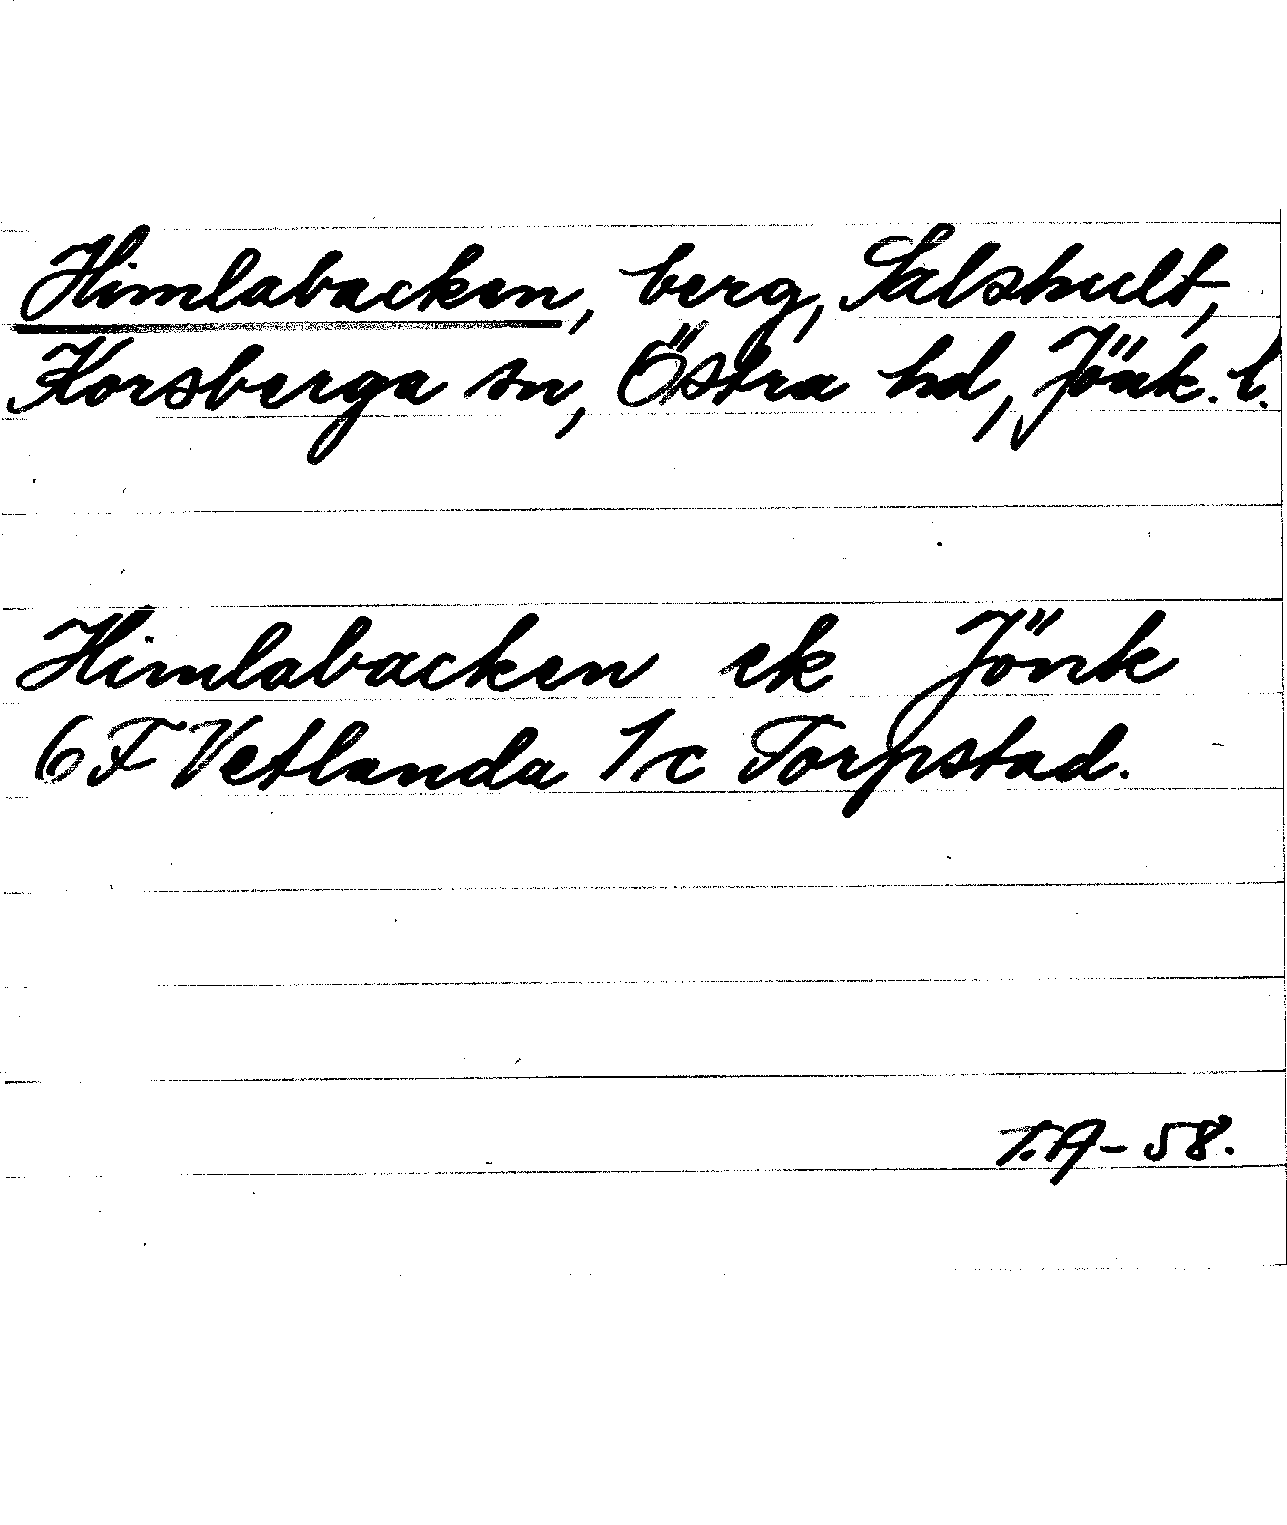 Himlabacken, berg, Salshult,
Korsberga sn, Östra hd, Jönk. l.
Himlabacken ek Jönk
6F Vetlanda 1c Torpstad.
T.A-58.